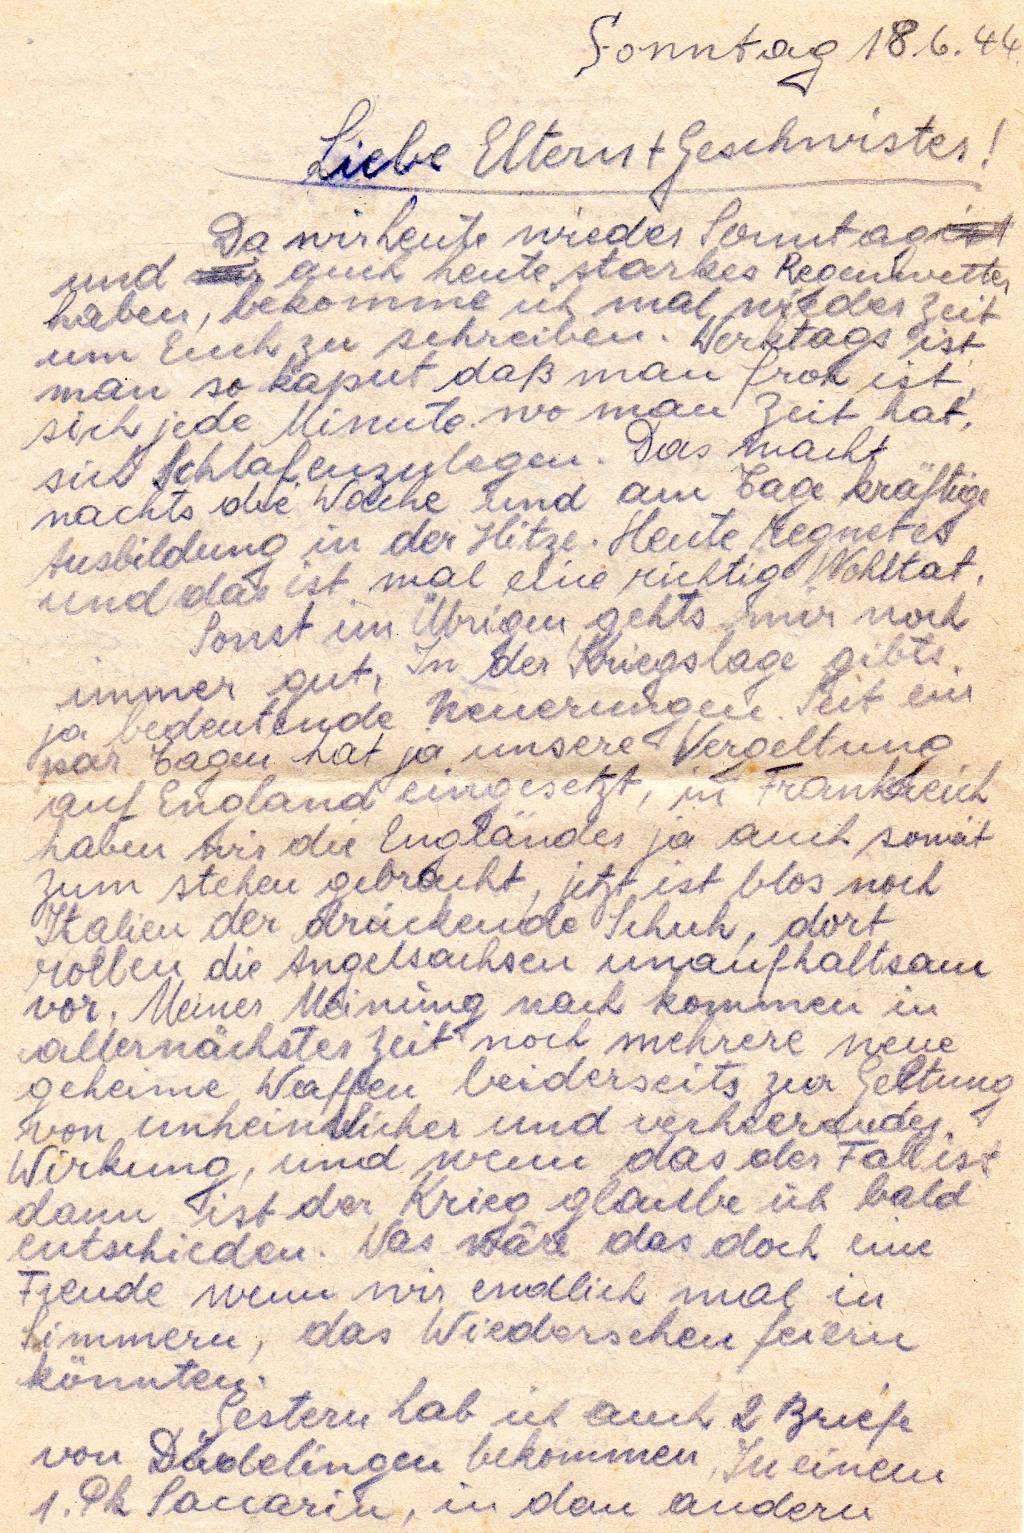 Sonntag 18.6.44.
Liebe Eltern + Geschwister!
Da wir heute wieder Sonntag
und auch heute starkes Regenwetter
haben, bekomme ich mal wieder Zeit
um Euch zu schreiben. Werktags ist
man so kaput daß man froh ist,
sich jede Minute wo man Zeit hat,
sich Schlafenzulegen. Das macht
nachts die Wache und am Tage kräftige
Ausbildung in der Hitze. Heute regnet es
und das ist mal eine richtige Wohltat.
Sonst im Übrigen gehts mir noch
immer gut, In der Kriegslage gibts
ja bedeutende Neuerungen. Seit ein
par Tagen hat ja unsere Vergeltung
auf England eingesetzt, in Frankreich
haben wir die Engländer ja auch soweit
zum stehen gebracht, jetzt ist blos noch
Italien der drückende Schuh, dort
rollen die Angelsachsen unaufhaltsam
vor. Meiner Meinung nach kommen in
allernächster Zeit noch mehrere neue
geheime Waffen beiderseits zur Geltung
von unheimlicher und verheerender
Wirkung, und wenn das der Fall ist
dann ist der Krieg glaube ich bald
entschieden. Was wäre das doch eine
Freude wenn wir endlich mal in
Simmern, das Wiedersehen feiern
könnten.
Gestern hab ich auch 2 Briefe
von Düdelingen bekommen, In einem
1. Pk Saccarin, in dem andern